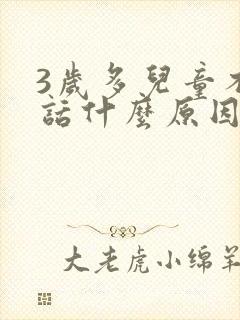 3歲多兒童不
話什麼原因
大老虎小绵羊